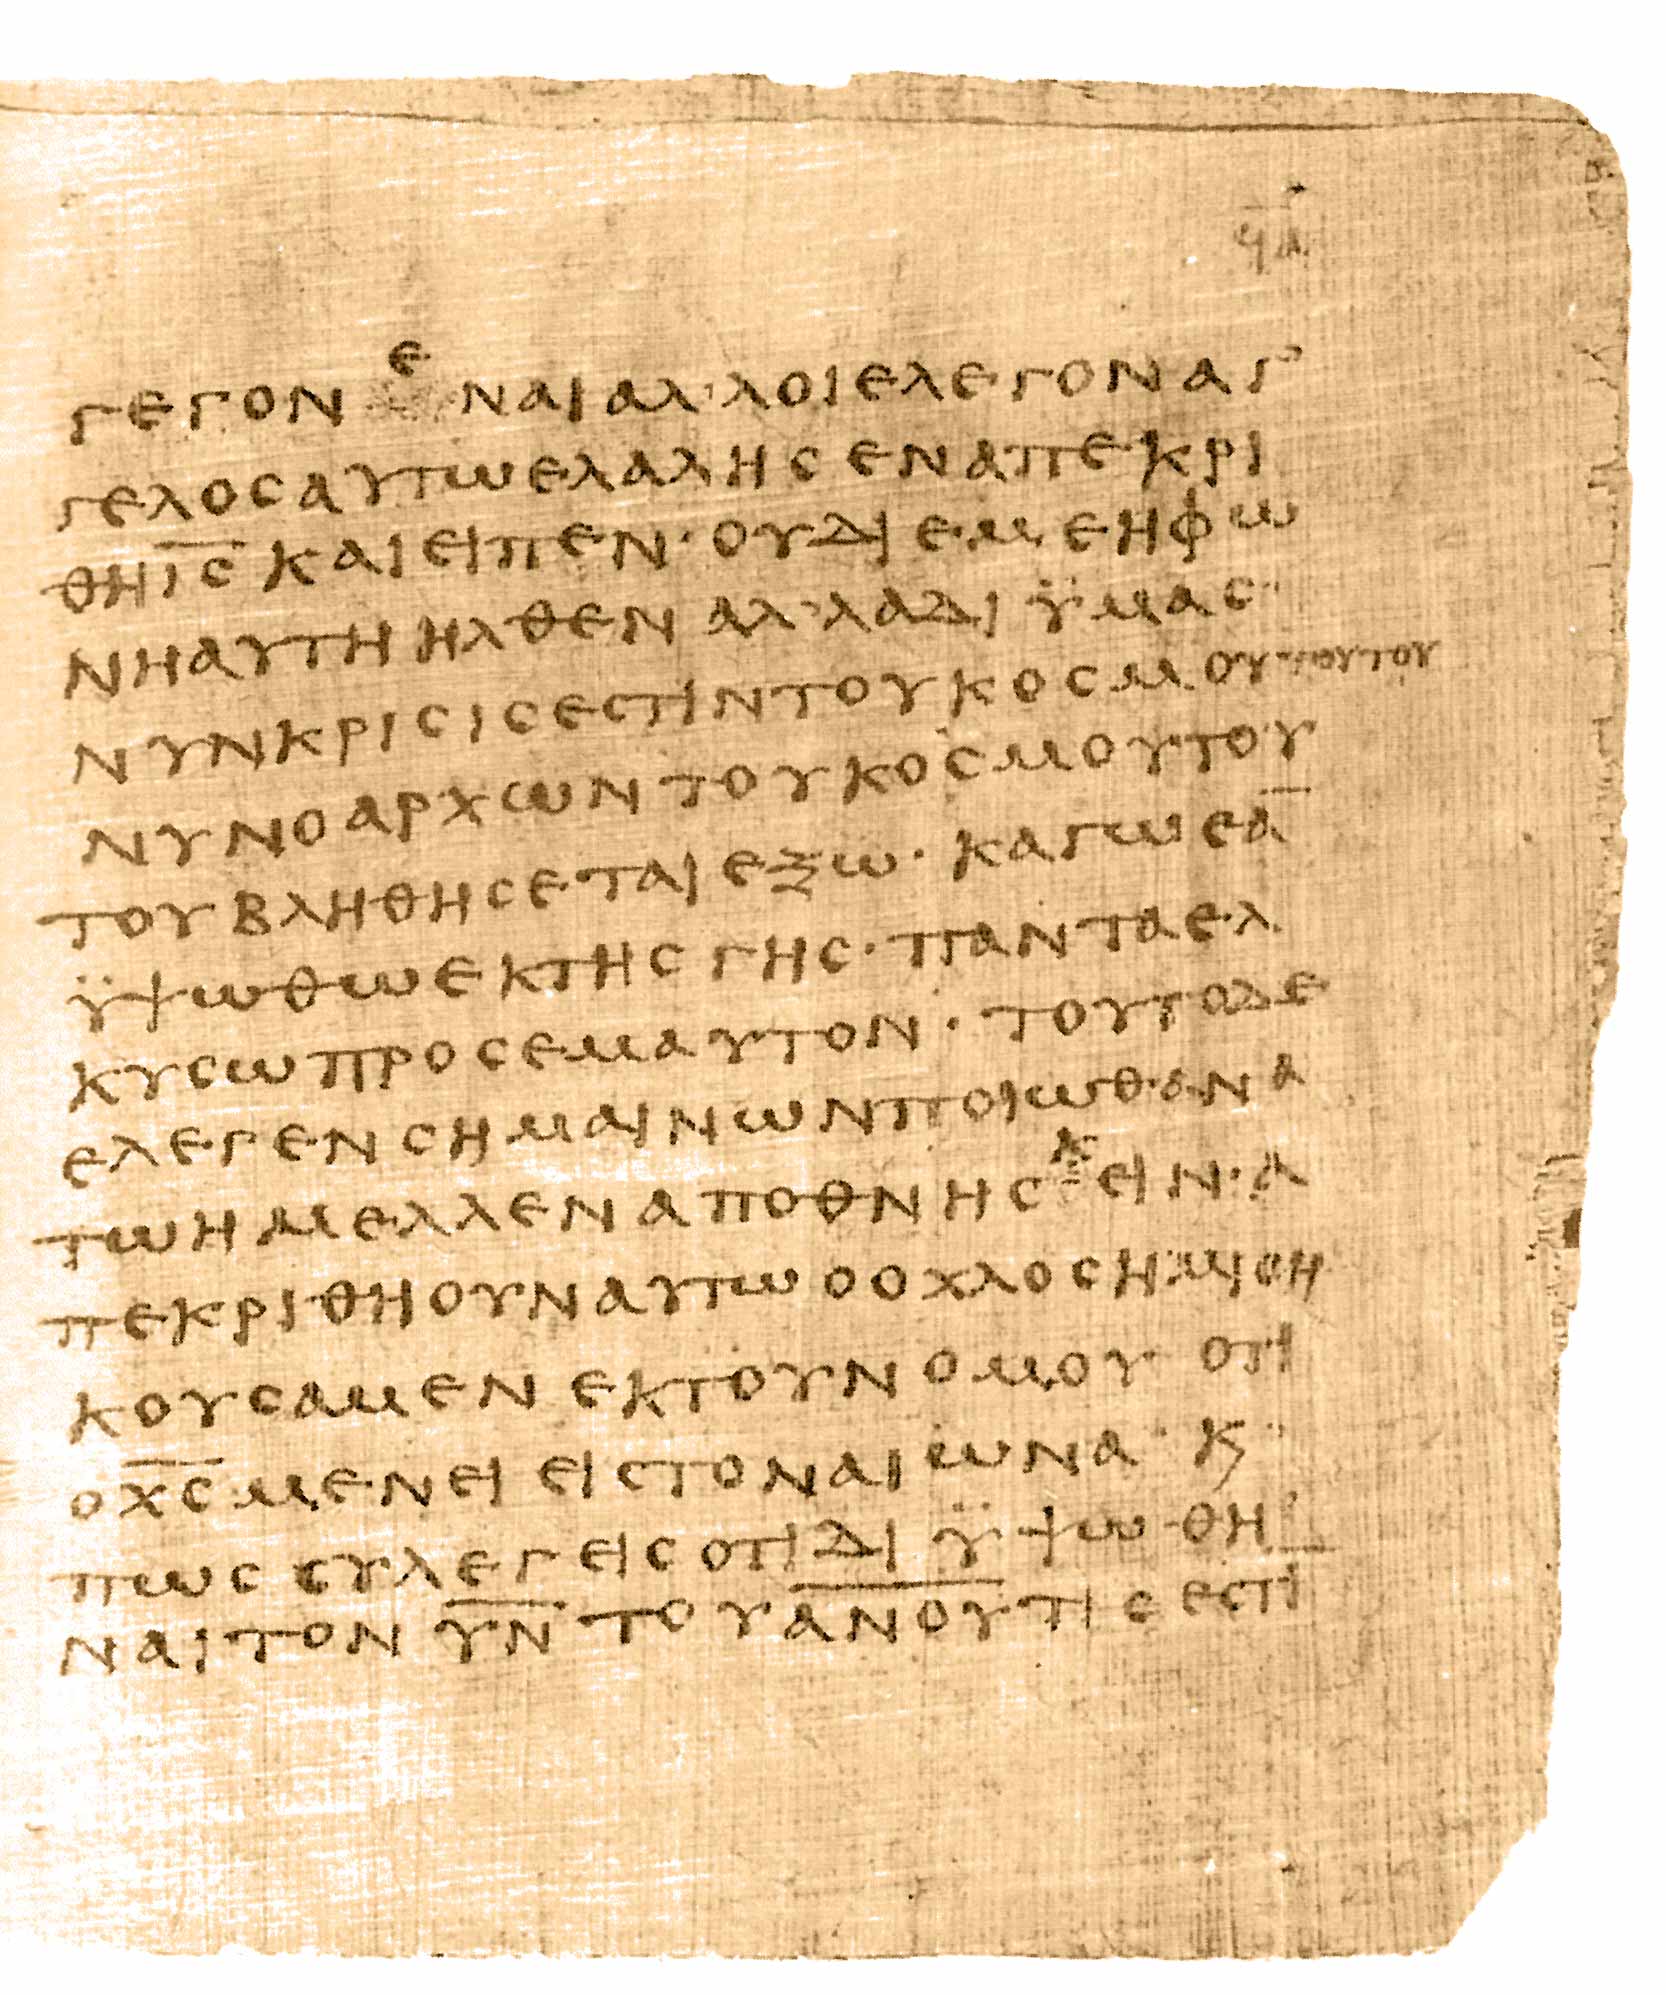 ϥα
γεγονεναι αλ᾽λοι ελεγον αγ᾽
γελος αυτω ελαλησεν απεκρι
θη ι̅ς̅ και ειπεν· ου δι εμε η φω
νη αυτη ηλθεν αλ᾽λα δι ϋμας·
νυν κρισις εστιν του κοσμου τουτου
νυν ο αρχων του κοσμου του
του βληθησεται εξω· καγω εα̅
ϋψωθω εκ της γης· παντα ελ
κυσω προς εμαυτον· τουτο δε
ελεγεν σημαινων ποιω θανα
τω ημελλεν αποθνησκειν· α
πεκριθη ουν αυτω ο οχλος ημις η
κουσαμεν εκ του νομου οτι
ο χ̅ς̅ μενει εις τον αιωνα· κ̣
πως συ λεγεις οτι δι ϋψωθη
ναι τον υ̅ν̅ του α̅ν̅ο̅υ̅ τις εστι̅